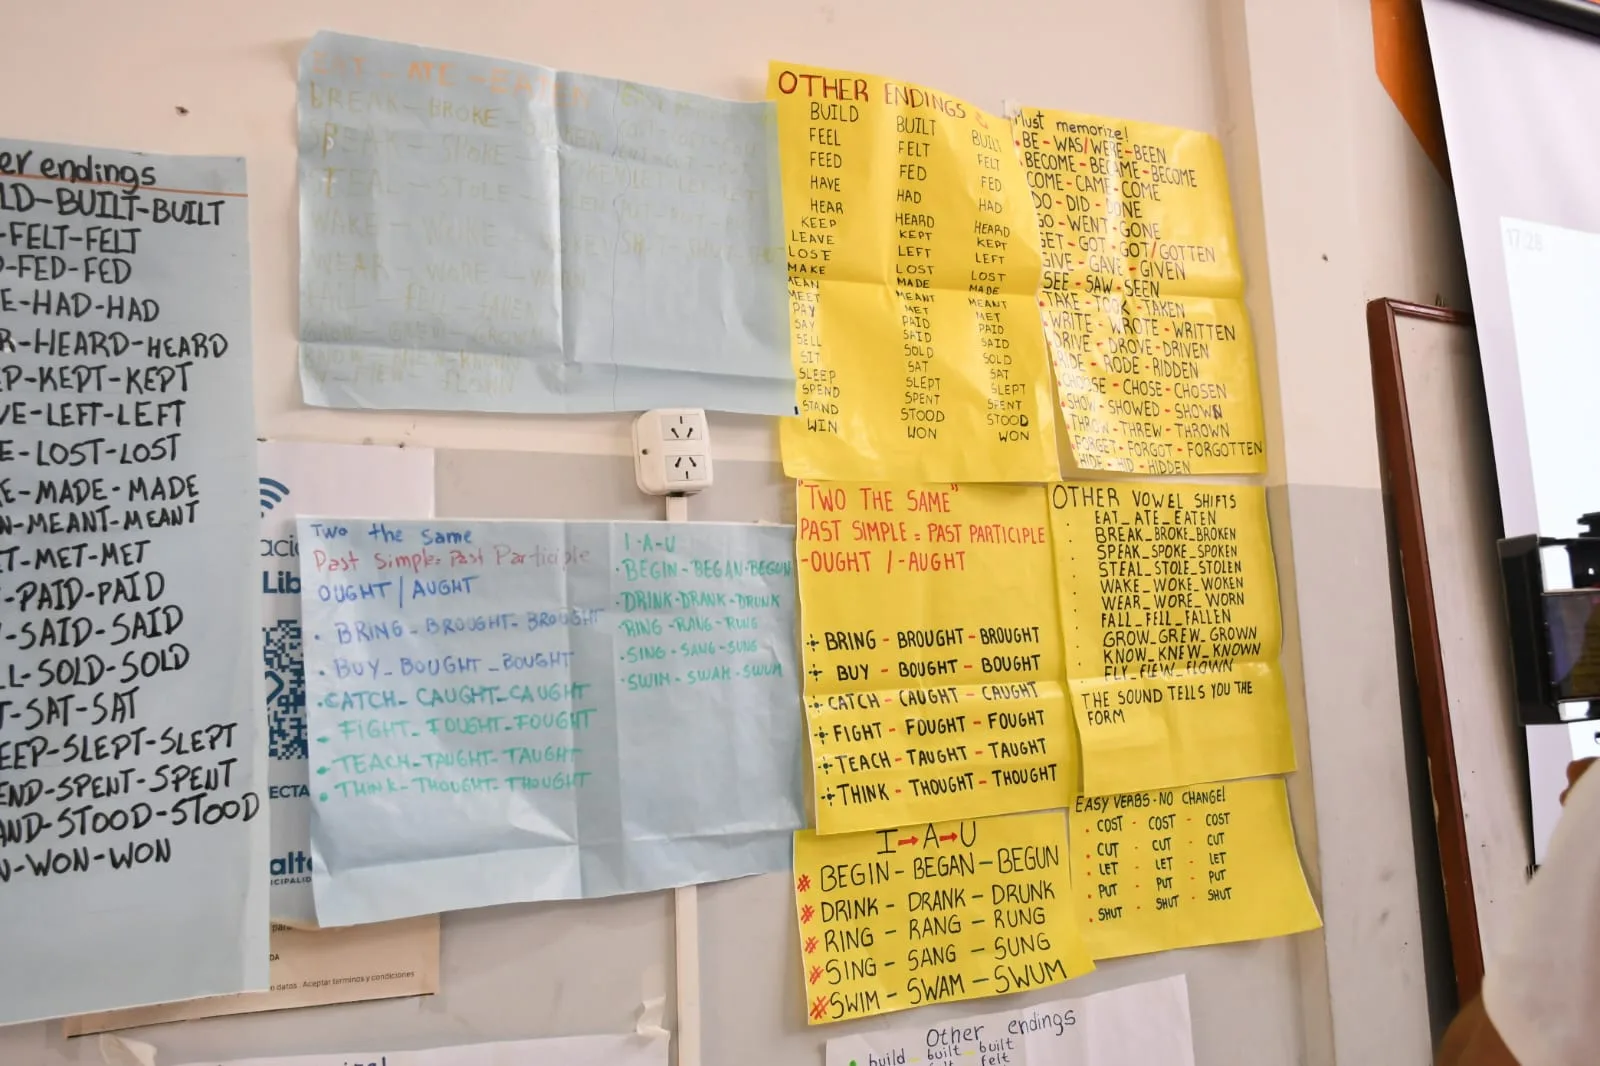 endings
BUILT-BUILT
FELT-FELT
FED-FED
HAD-HAD
HEARD-HEARD
KEPT-KEPT
LEFT-LEFT
LOST-LOST
MADE-MADE
MEANT-MEANT
MET-MET
PAID-PAID
SAID-SAID
SOLD-SOLD
SAT-SAT
SLEPT-SLEPT
SPENT-SPENT
STOOD-STOOD
WON-WON
EAT - ATE - EATEN
BREAK - BROKE -
SPEAK - SPOKE -
STEAL - STOLE -
WAKE - WOKE -
WEAR - WORE - WORN
Two the Same
Past Simple = Past Participle
OUGHT / AUGHT
· BRING - BROUGHT - BROUGHT
· BUY - BOUGHT - BOUGHT
· CATCH - CAUGHT - CAUGHT
- FIGHT - FOUGHT - FOUGHT
· TEACH - TAUGHT - TAUGHT
· THINK - THOUGHT - THOUGHT
I-A-U
· BEGIN - BEGAN - BEGUN
· DRINK - DRANK - DRUNK
· RING - RANG - RUNG
· SING - SANG - SUNG
· SWIM - SWAM - SWUM
OTHER ENDINGS
BUILD BUILT BUILT
FEEL FELT FELT
FEED FED FED
HAVE HAD HAD
HEAR HEARD HEARD
KEEP KEPT KEPT
LEAVE LEFT LEFT
LOSE LOST LOST
MAKE MADE MADE
MEAN MEANT MEANT
MEET MET MET
PAY PAID PAID
SAY SAID SAID
SELL SOLD SOLD
SIT SAT SAT
SLEEP SLEPT SLEPT
SPEND SPENT SPENT
STAND STOOD STOOD
WIN WON WON
Must memorize!
· BE - WAS/WERE - BEEN
· BECOME - BECAME - BECOME
COME - CAME - COME
DO - DID - DONE
GO - WENT - GONE
GET - GOT - GOT/GOTTEN
GIVE - GAVE - GIVEN
SEE - SAW - SEEN
· TAKE - TOOK - TAKEN
· WRITE - WROTE - WRITTEN
· DRIVE - DROVE - DRIVEN
· RIDE - RODE - RIDDEN
· CHOOSE - CHOSE - CHOSEN
· SHOW - SHOWED - SHOWN
· THROW - THREW - THROWN
· FORGET - FORGOT - FORGOTTEN
HIDE - HID - HIDDEN
"TWO THE SAME"
PAST SIMPLE = PAST PARTICIPLE
-OUGHT / -AUGHT
BRING - BROUGHT - BROUGHT
BUY - BOUGHT - BOUGHT
CATCH - CAUGHT - CAUGHT
FIGHT - FOUGHT - FOUGHT
TEACH - TAUGHT - TAUGHT
THINK - THOUGHT - THOUGHT
OTHER VOWEL SHIFTS
· EAT_ATE_EATEN
· BREAK_BROKE_BROKEN
· SPEAK_SPOKE_SPOKEN
· STEAL_STOLE_STOLEN
· WAKE_WOKE_WOKEN
· WEAR_WORE_WORN
· FALL_FELL_FALLEN
· GROW_GREW_GROWN
· KNOW_KNEW_KNOWN
· FLY_FLEW_FLOWN
THE SOUND TELLS YOU THE
FORM
I→A→U
# BEGIN - BEGAN - BEGUN
# DRINK - DRANK - DRUNK
# RING - RANG - RUNG
# SING - SANG - SUNG
# SWIM - SWAM - SWUM
EASY VERBS - NO CHANGE!
· COST - COST - COST
· CUT - CUT - CUT
· LET - LET - LET
· PUT - PUT - PUT
· SHUT - SHUT - SHUT
Other endings
build - built - built
felt
Aceptar terminos y condiciones
17:28